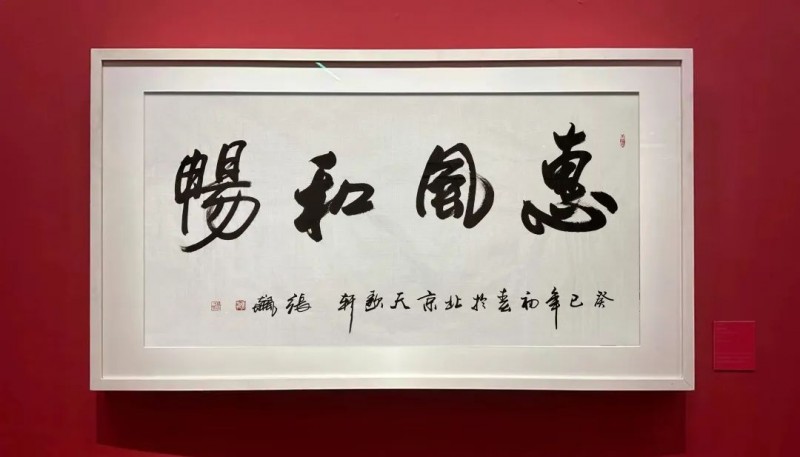 惠風和暢
癸巳年初春於北京天歌軒 張飆